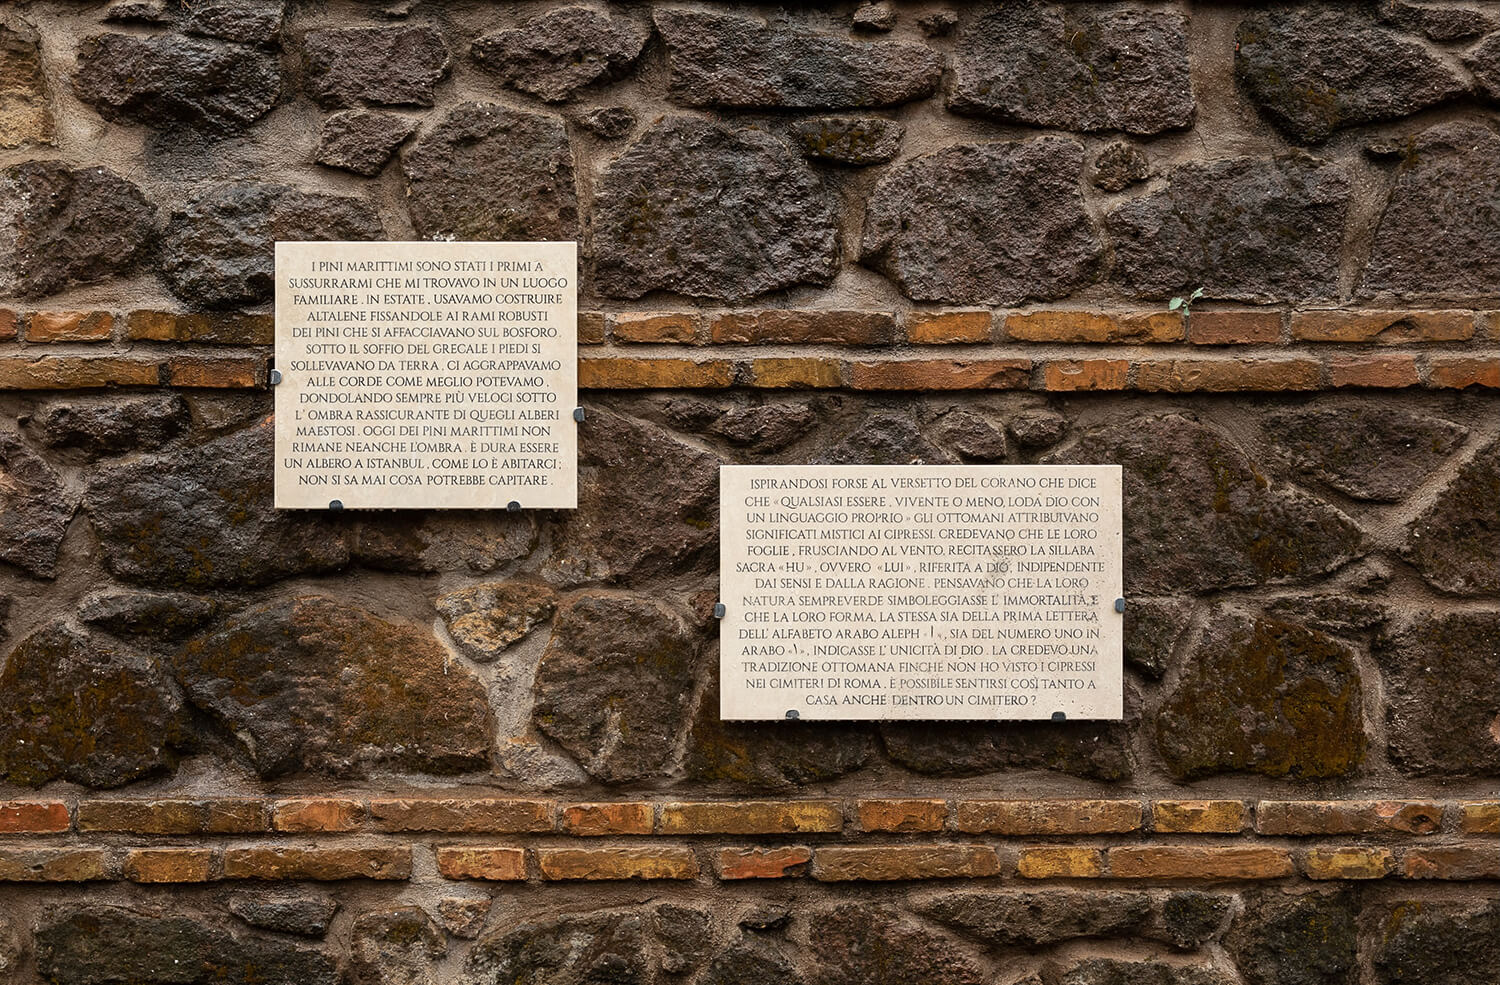 I PINI MARITTIMI SONO STATI I PRIMI A
SUSSURRARMI CHE MI TROVAVO IN UN LUOGO
FAMILIARE . IN ESTATE , USAVAMO COSTRUIRE
ALTALENE FISSANDOLE AI RAMI ROBUSTI
DEI PINI CHE SI AFFACCIAVANO SUL BOSFORO .
SOTTO IL SOFFIO DEL GRECALE I PIEDI SI
SOLLEVAVANO DA TERRA . CI AGGRAPPAVAMO
ALLE CORDE COME MEGLIO POTEVAMO ,
DONDOLANDO SEMPRE PIÙ VELOCI SOTTO
L' OMBRA RASSICURANTE DI QUEGLI ALBERI
MAESTOSI . OGGI DEI PINI MARITTIMI NON
RIMANE NEANCHE L'OMBRA . È DURA ESSERE
UN ALBERO A ISTANBUL , COME LO È ABITARCI ;
NON SI SA MAI COSA POTREBBE CAPITARE .
ISPIRANDOSI FORSE AL VERSETTO DEL CORANO CHE DICE
CHE « QUALSIASI ESSERE , VIVENTE O MENO, LODA DIO CON
UN LINGUAGGIO PROPRIO » GLI OTTOMANI ATTRIBUIVANO
SIGNIFICATI MISTICI AI CIPRESSI. CREDEVANO CHE LE LORO
FOGLIE , FRUSCIANDO AL VENTO, RECITASSERO LA SILLABA
SACRA « HU » , OVVERO « LUI » , RIFERITA A DIO, INDIPENDENTE
DAI SENSI E DALLA RAGIONE . PENSAVANO CHE LA LORO
NATURA SEMPREVERDE SIMBOLEGGIASSE L' IMMORTALITÀ, E
CHE LA LORO FORMA, LA STESSA SIA DELLA PRIMA LETTERA
DELL' ALFABETO ARABO ALEPH « ا » , SIA DEL NUMERO UNO IN
ARABO « ١ » , INDICASSE L' UNICITÀ DI DIO . LA CREDEVO UNA
TRADIZIONE OTTOMANA FINCHÉ NON HO VISTO I CIPRESSI
NEI CIMITERI DI ROMA . È POSSIBILE SENTIRSI COSÌ TANTO A
CASA ANCHE DENTRO UN CIMITERO ?